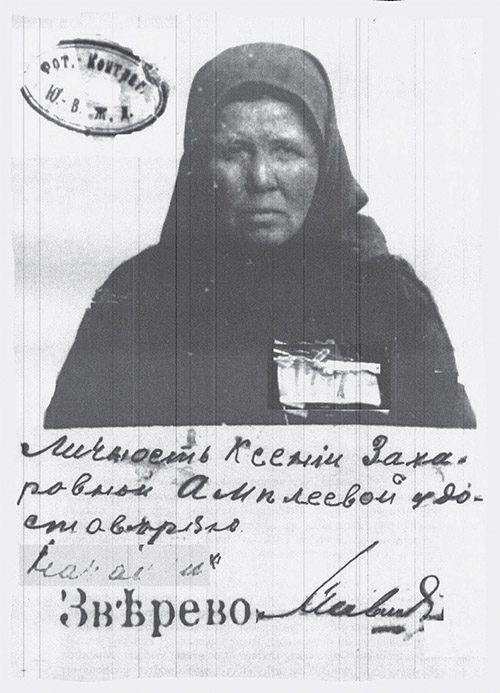 Фот.-Контраг.
Ю.-В. Ж. Д.
Личность Ксеніи Заха-
ровной Амплеевой удо-
стовѣряю
Звѣрево.